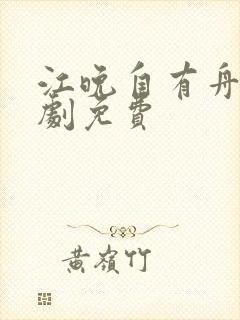 江晚自有舟
劇免費
黃嶺竹